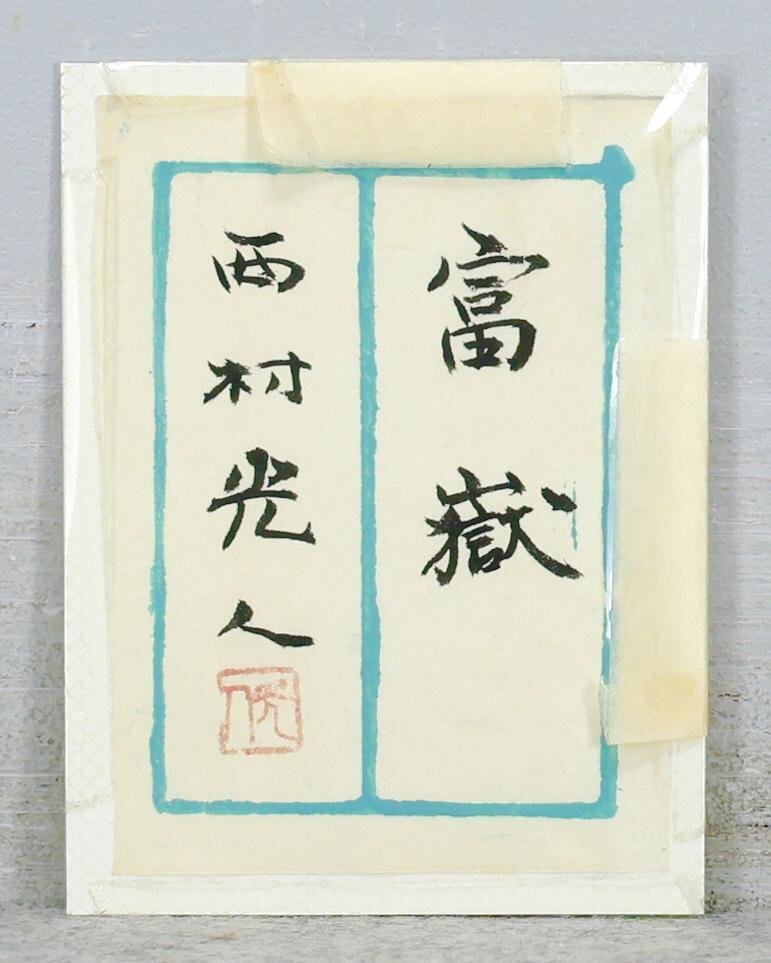 富嶽
西村光人